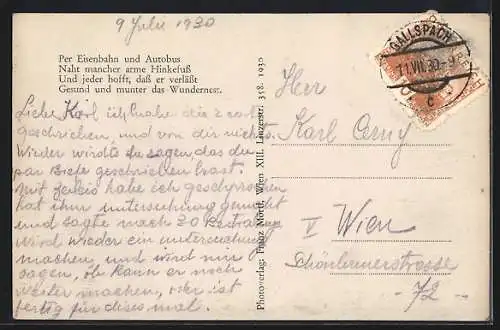 9 Julu 1930
Per Eisenbahn und Autobus
Naht mancher arme Hinkefuß
Und jeder hofft, daß er verläßt
Gesund und munter das Wundernest.
Liebe Karl ich habe die 2 cort
geschrieben, und von dir nichts.
Wieder wirdst du sagen, das du
par Briefe geschrieben hast.
mit habe ich geschprochen
hat ihm untersuchung gemacht
und sagte nach 20 Bestralung
wird wieder ein untersuchung
machen, und wird mir
sagen, ob kann er noch
weiter machen, oder ist
fertig für dieses mal.
Photoverlag: Franz Mörtl, Wien XIII. Linzerstr. 358. 1930
GALLSPACH
11.VII.30.-9
c
Herr
Karl
V Wien
Schönbrunerstrasse
72